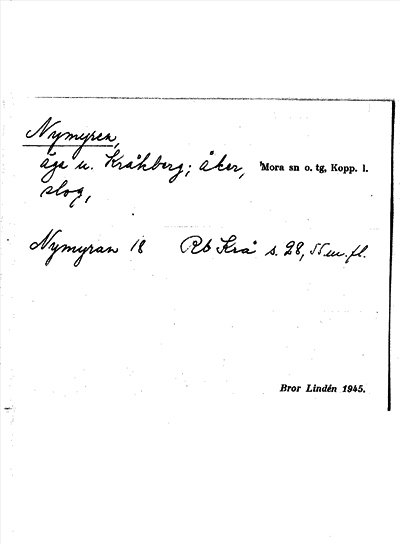 Nymyren,
äga u. Kråkberg; åker, Mora sn o. tg, Kopp. l.
slog,
Nymyran 18 Rb Krå s. 28, 55 m. fl.
Bror Lindén 1945.